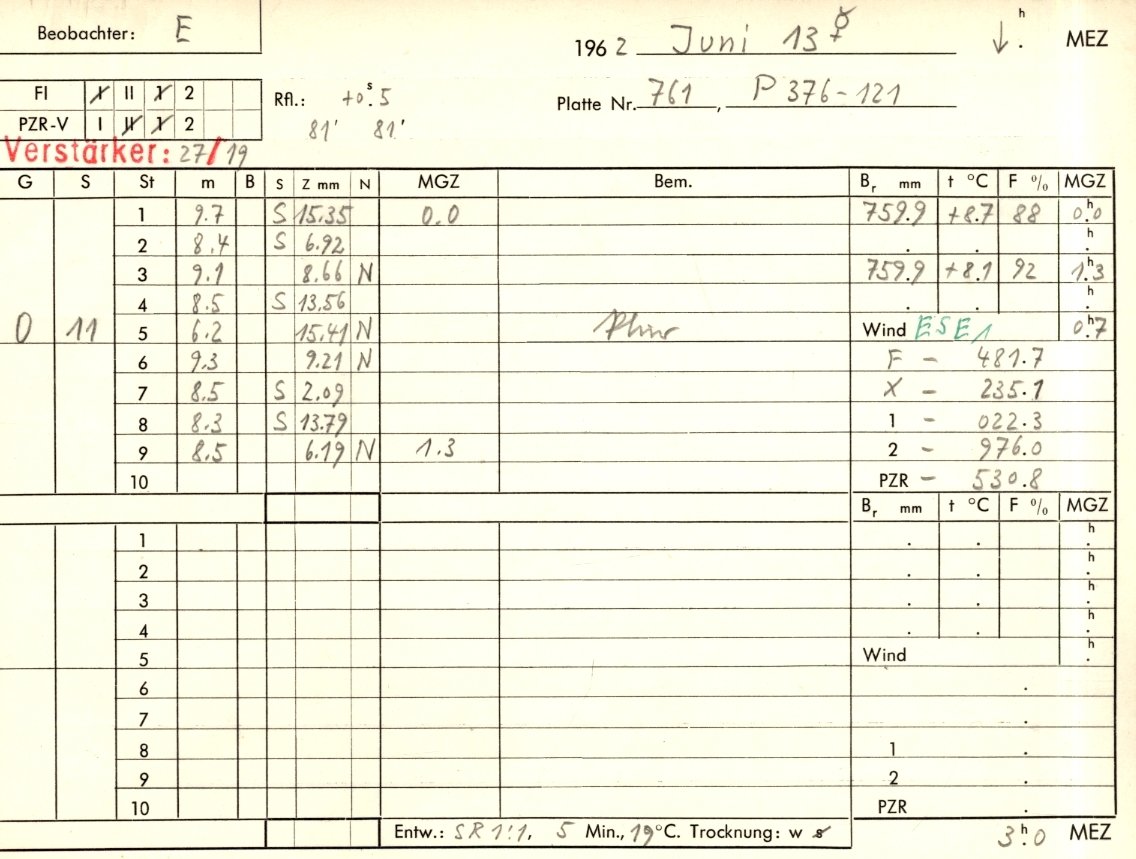 Beobachter: E
1962 Juni 13 ☿ ↓ h . MEZ
FI I II 1 2
Rfl.: +0s.5
Platte Nr. 761, P 376-121
PZR-V I II 1 2
81' 81'
Verstärker: 27/19
G S St m B S Z mm N MGZ Bem. Br mm t °C F % MGZ
1 9.7 S 15.35 0.0 759.9 +8.7 88 0h.0
2 8.4 S 6.92 . . h.
3 9.1 8.66 N 759.9 +8.1 92 1h.3
4 8.5 S 13.56 . . h.
0 11 5 6.2 15.41 N Wind ESE 1 0h.7
6 9.3 9.21 N F - 481.7
7 8.5 S 2.09 X - 235.1
8 8.3 S 13.79 1 - 022.3
9 8.5 6.19 N 1.3 2 - 976.0
10 PZR - 530.8
Br mm t °C F % MGZ
1 . . h.
2 . . h.
3 . . h.
4 . . h.
5 Wind h.
6 .
7 .
8 1 .
9 2 .
10 PZR .
Entw.: SR 1:1, 5 Min., 19°C. Trocknung: w s 3h.0 MEZ